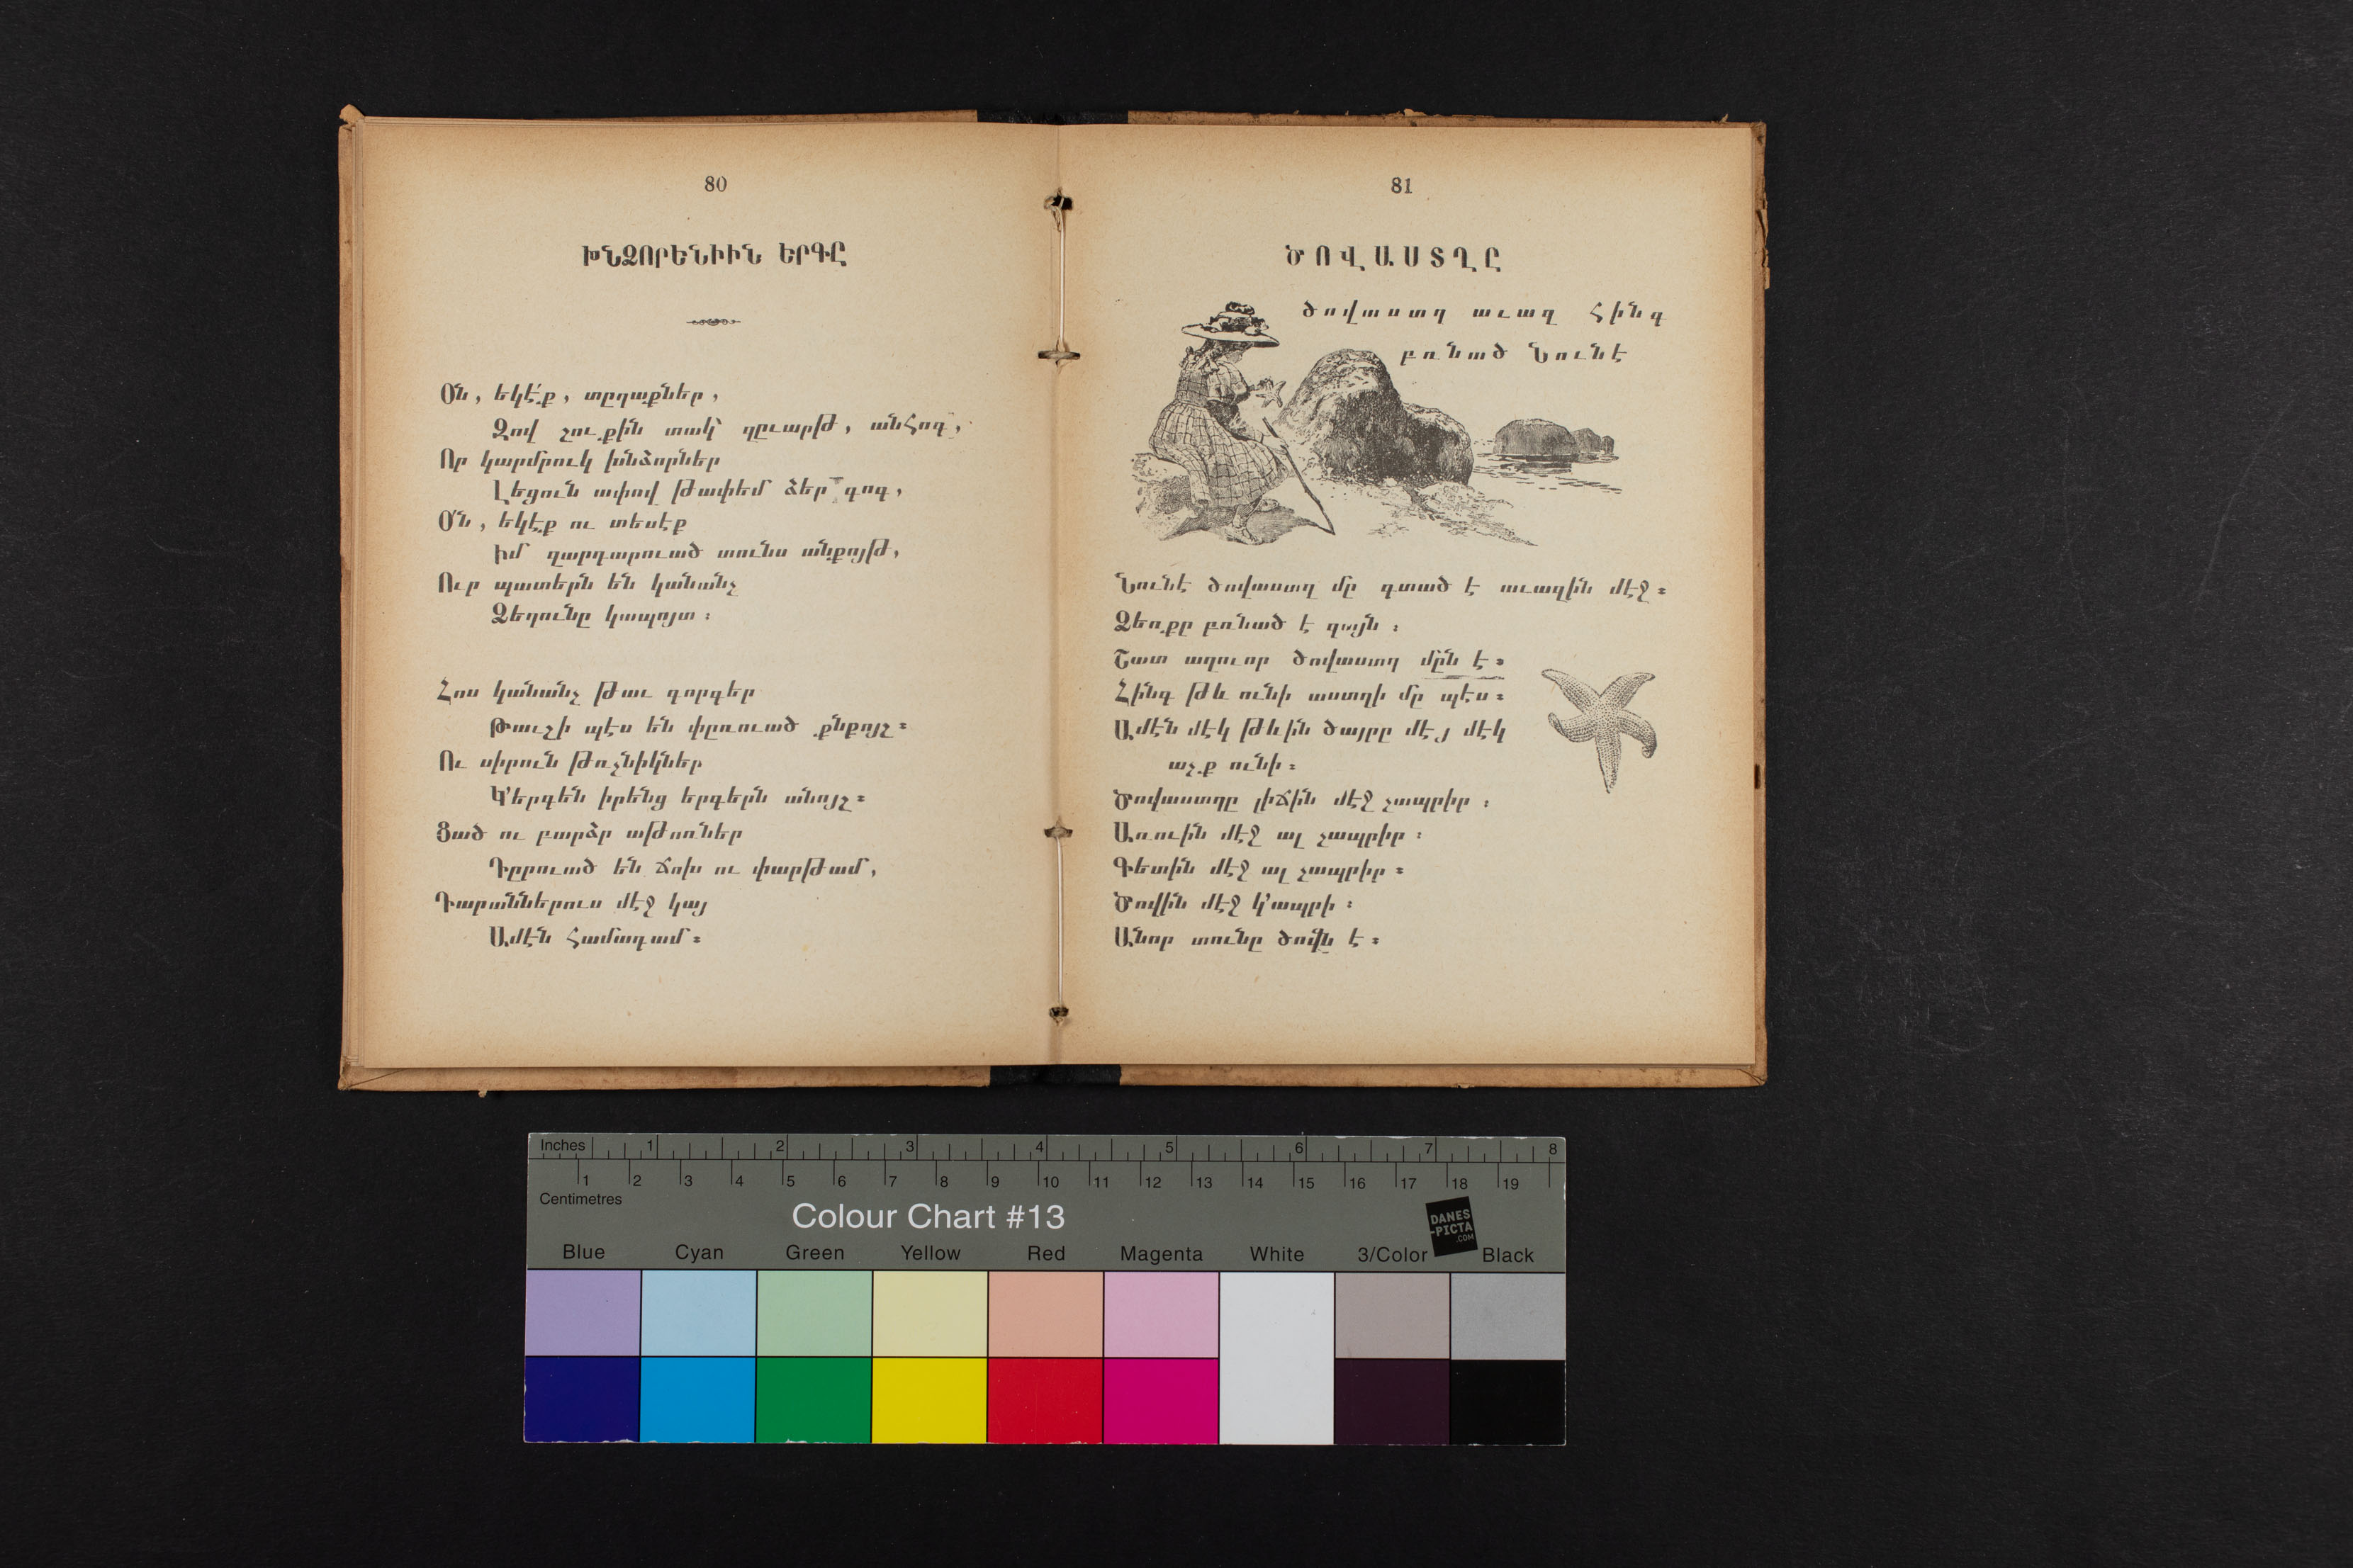 80
ԽՆՁՈՐԵՆԻԻՆ ԵՐԳԸ
Օն, եկէ՛ք, տըղաքներ,
Զով շուքին տակ՝ զըւարթ, անհոգ,
Որ կարմրուկ խնձորներ
Լեցուն ափով թափեմ ձեր գոգ,
Օ՛ն, եկէք ու տեսէք
Իմ զարդարուած տունս անքոյթ,
Ուր պատերն են կանանչ
Ձեղունը կապոյտ։
Հոս կանանչ թաւ գորգեր
Թաւշի պէս են փըռուած քնքոյշ։
Ու սիրուն թռչնիկներ
Կ՚երգեն իրենց երգերն անոյշ։
Ցած ու բարձր աթոռներ
Դըրուած են ճոխ ու փարթամ,
Դարաններուս մէջ կայ
Ամէն համադամ։
81
ԾՈՎԱՍՏՂԸ
ծովաստղ աւազ հինգ
բռնած Նունէ
Նունէ ծովաստղ մը գտած է աւազին մէջ։
Ձեռքը բռնած է զայն։
Շատ աղուոր ծովաստղ մըն է։
Հինգ թև ունի աստղի մը պէս։
Ամէն մէկ թևին ծայրը մէյ մէկ
աչք ունի։
Ծովաստղը լիճին մէջ չապրիր։
Առուին մէջ ալ չապրիր։
Գետին մէջ ալ չապրիր։
Ծովին մէջ կ՚ապրի։
Անոր տունը ծովն է։
Inches 1 2 3 4 5 6 7 8
1 2 3 4 5 6 7 8 9 10 11 12 13 14 15 16 17 18 19
Centimetres
Colour Chart #13
DANES
-PICTA
.COM
Blue Cyan Green Yellow Red Magenta White 3/Color Black